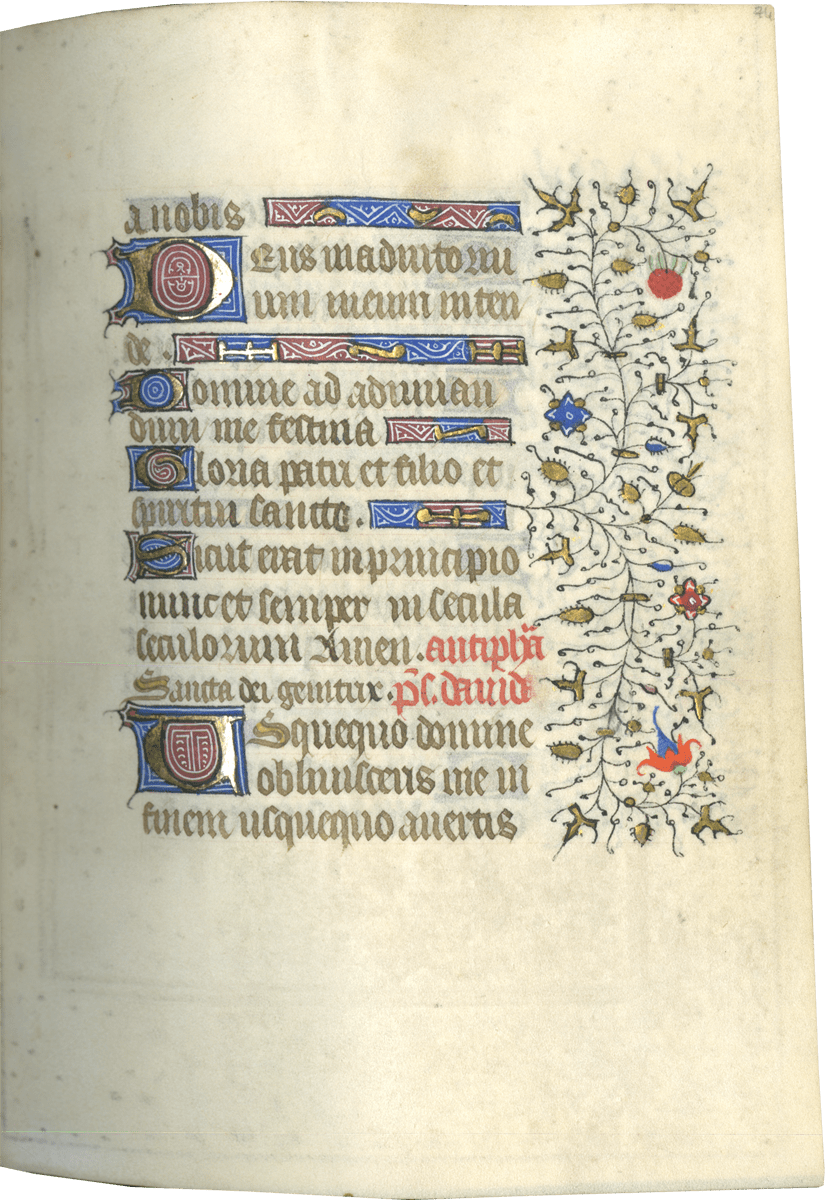 74
a nobis
Deus in adiuto riu
um meum inten
de .
Domine ad adiuuan
dum me festina
Gloria patri et filio et
spiritui sancto .
Sicut erat in principio
nunc et semper in secula
seculorum Amen . antiphã
Sancta dei genitrix . p̃s. dauid
Usquequo domine
obliuisceris me in
finem usquequo auertis